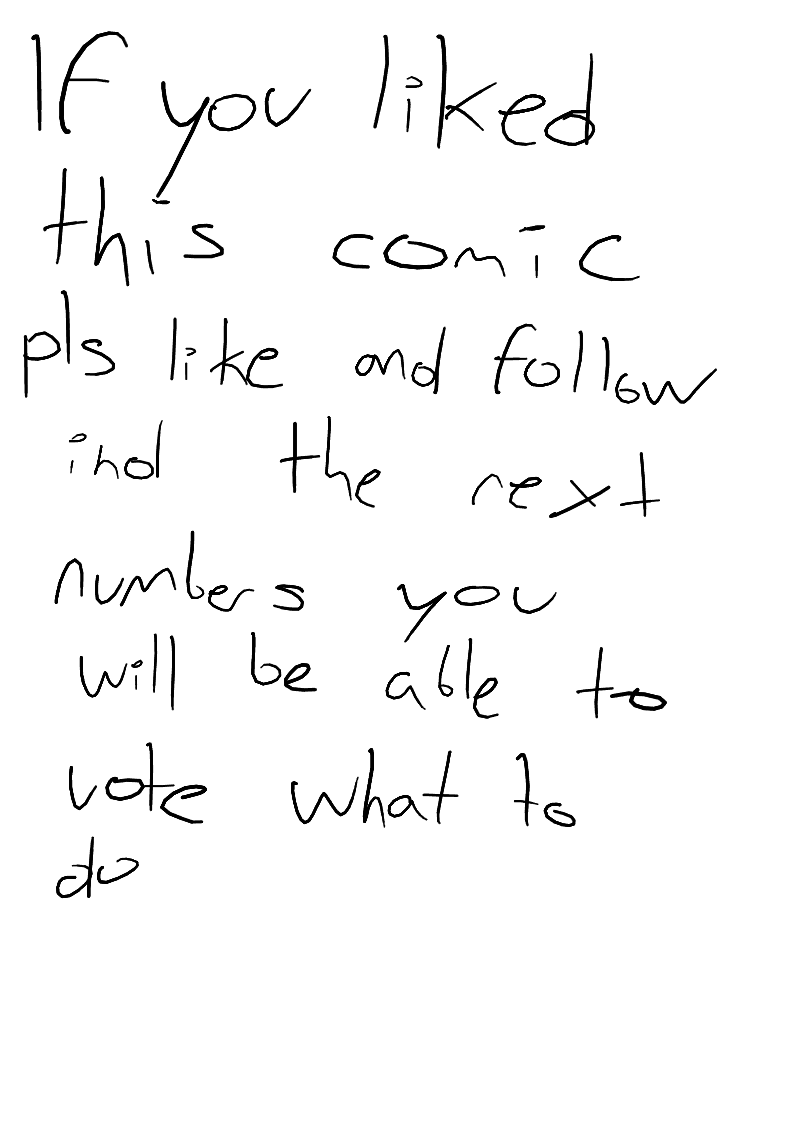 If you liked
this comic
pls like and follow
ind the next
numbers you
will be able to
vote what to
do